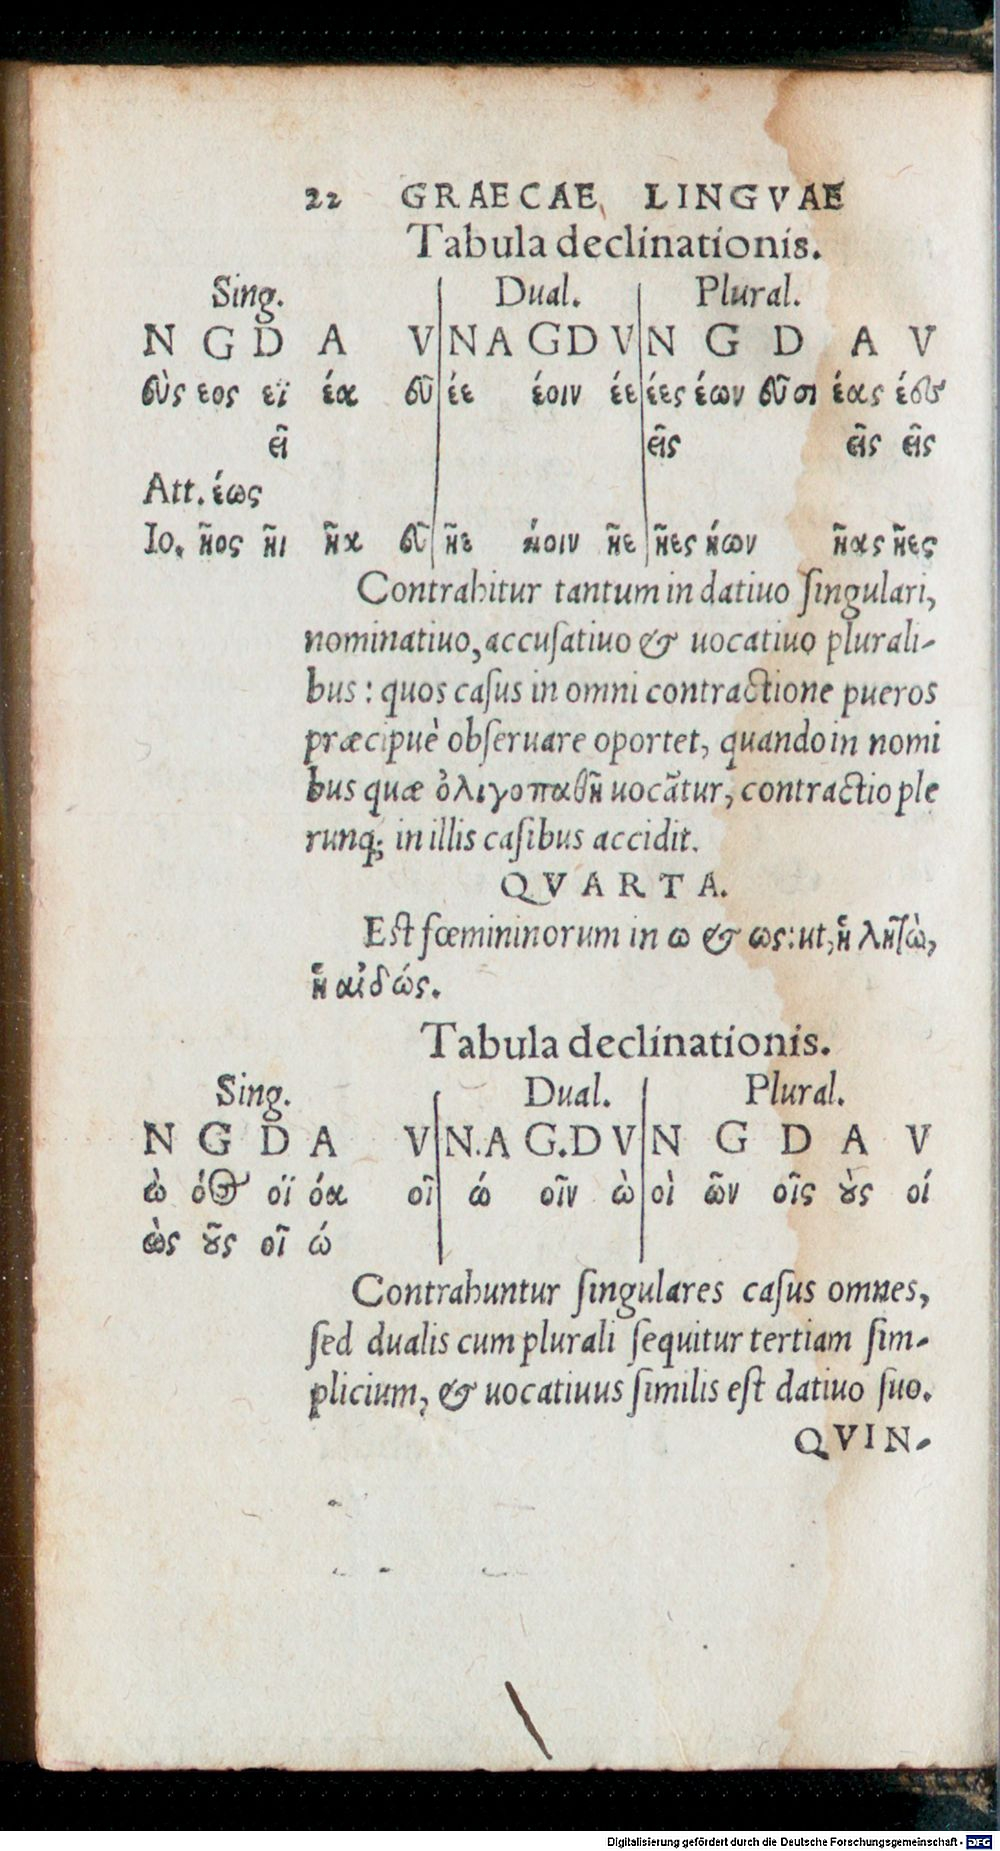 22 GRAECAE LINGVAE
Tabula declinationis.
Sing. Dual. Plural.
N G D A V N A G D V N G D A V
εὺς εος εϊ έα εῦ έε έοιν έε έες έων εῦσι έας έες
εῖ εῖς εῖς εῖς
Att. έως
Io. ῆος ῆι ῆα εῦ ῆε ήοιν ῆε ῆες ήων ῆας ῆες
Contrahitur tantum in datiuo ſingulari,
nominatiuo, accuſatiuo & uocatiuo plurali-
bus : quos caſus in omni contractione pueros
præcipuè obſeruare oportet, quando in nomi
bus quæ ὀλιγοπαθῆ uocãtur, contractio ple
runq; in illis caſibus accidit.
QVARTA.
Eſt fœmininorum in ω & ως: ut, ἡ λητὼ,
ἡ αἰδώς.
Tabula declinationis.
Sing. Dual. Plural.
N G D A V N.A G.D V N G D A V
ὼ όος οϊ όα οῖ ώ οῖν ὼ οὶ ῶν οῖς ὺς οί
ὼς ῦς οῖ ώ
Contrahuntur ſingulares caſus omnes,
ſed dualis cum plurali ſequitur tertiam ſim-
plicium, & uocatiuus ſimilis eſt datiuo ſuo.
QVIN-
Digitalisierung gefördert durch die Deutsche Forschungsgemeinschaft - DFG